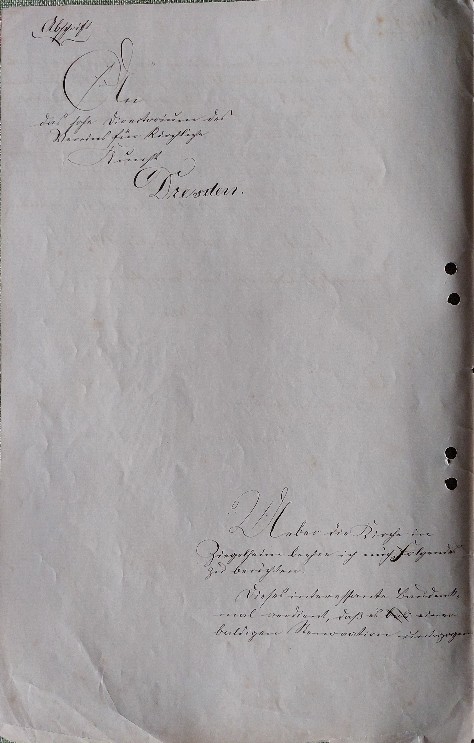 Abschrift
An
das hohe Directorium des
Vereins für Kirchliche
Kunst
Dresden.
Ueber die Kirche in
Ziegelheim beehre ich mich Folgendes
zu berichten
Dieses interessante Baudenk-
mal verdient, daß es bei einer
baldigen Renovation